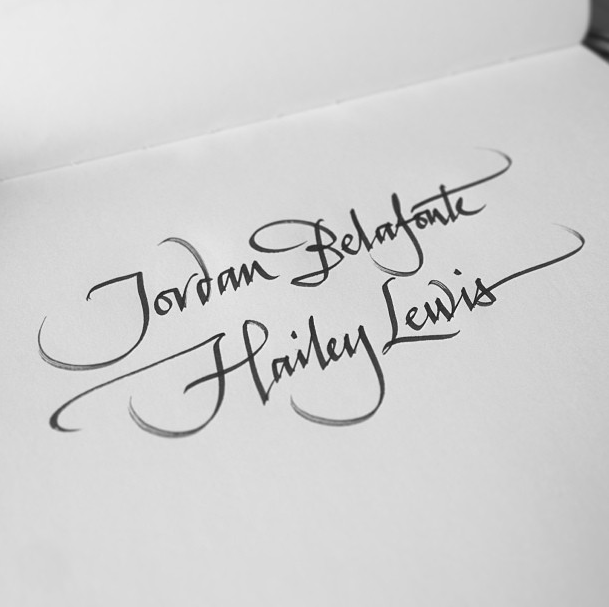 Jordan Belafonte
Hailey Lewis